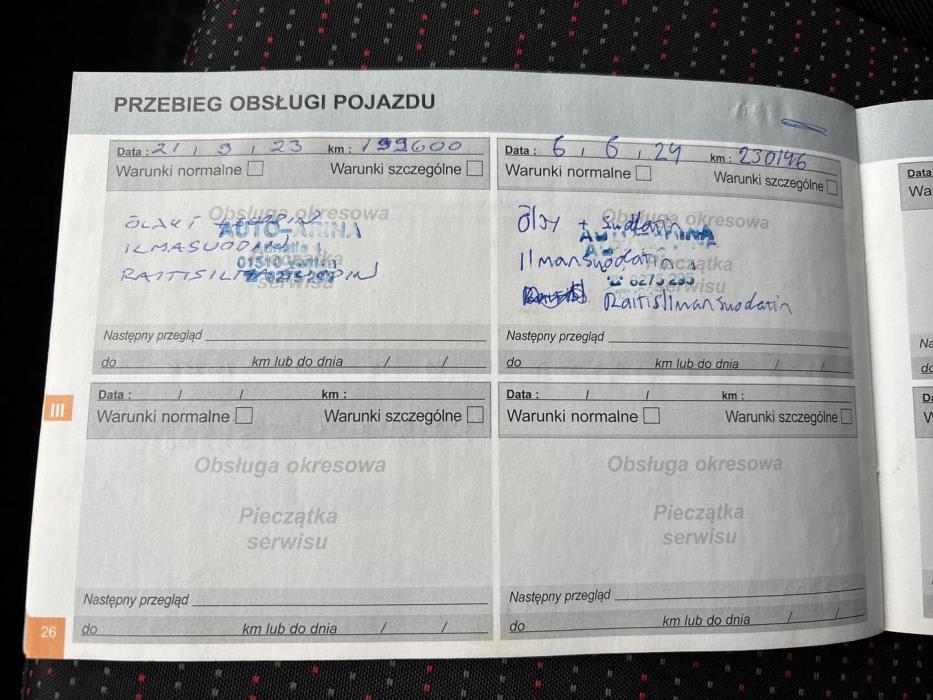 PRZEBIEG OBSŁUGI POJAZDU
Data : 21 / 9 / 23 km : 199600
Warunki normalne Warunki szczególne
Obsługa okresowa
AUTO-ARINA
ILMASUODIN
serwisu
Następny przegląd
do km lub do dnia / /
Data : 6 / 6 / 24 km : 230146
Warunki normalne Warunki szczególne
Obsługa okresowa
Öljy + suodatin
Ilmansuodatin
Pieczątka
☎ 8275 293
Raitisilmansuodatin
serwisu
Następny przegląd
do km lub do dnia / /
III
Data : / / km :
Warunki normalne Warunki szczególne
Obsługa okresowa
Pieczątka
serwisu
Następny przegląd
do km lub do dnia / /
Data : / / km :
Warunki normalne Warunki szczególne
Obsługa okresowa
Pieczątka
serwisu
Następny przegląd
do km lub do dnia / /
26